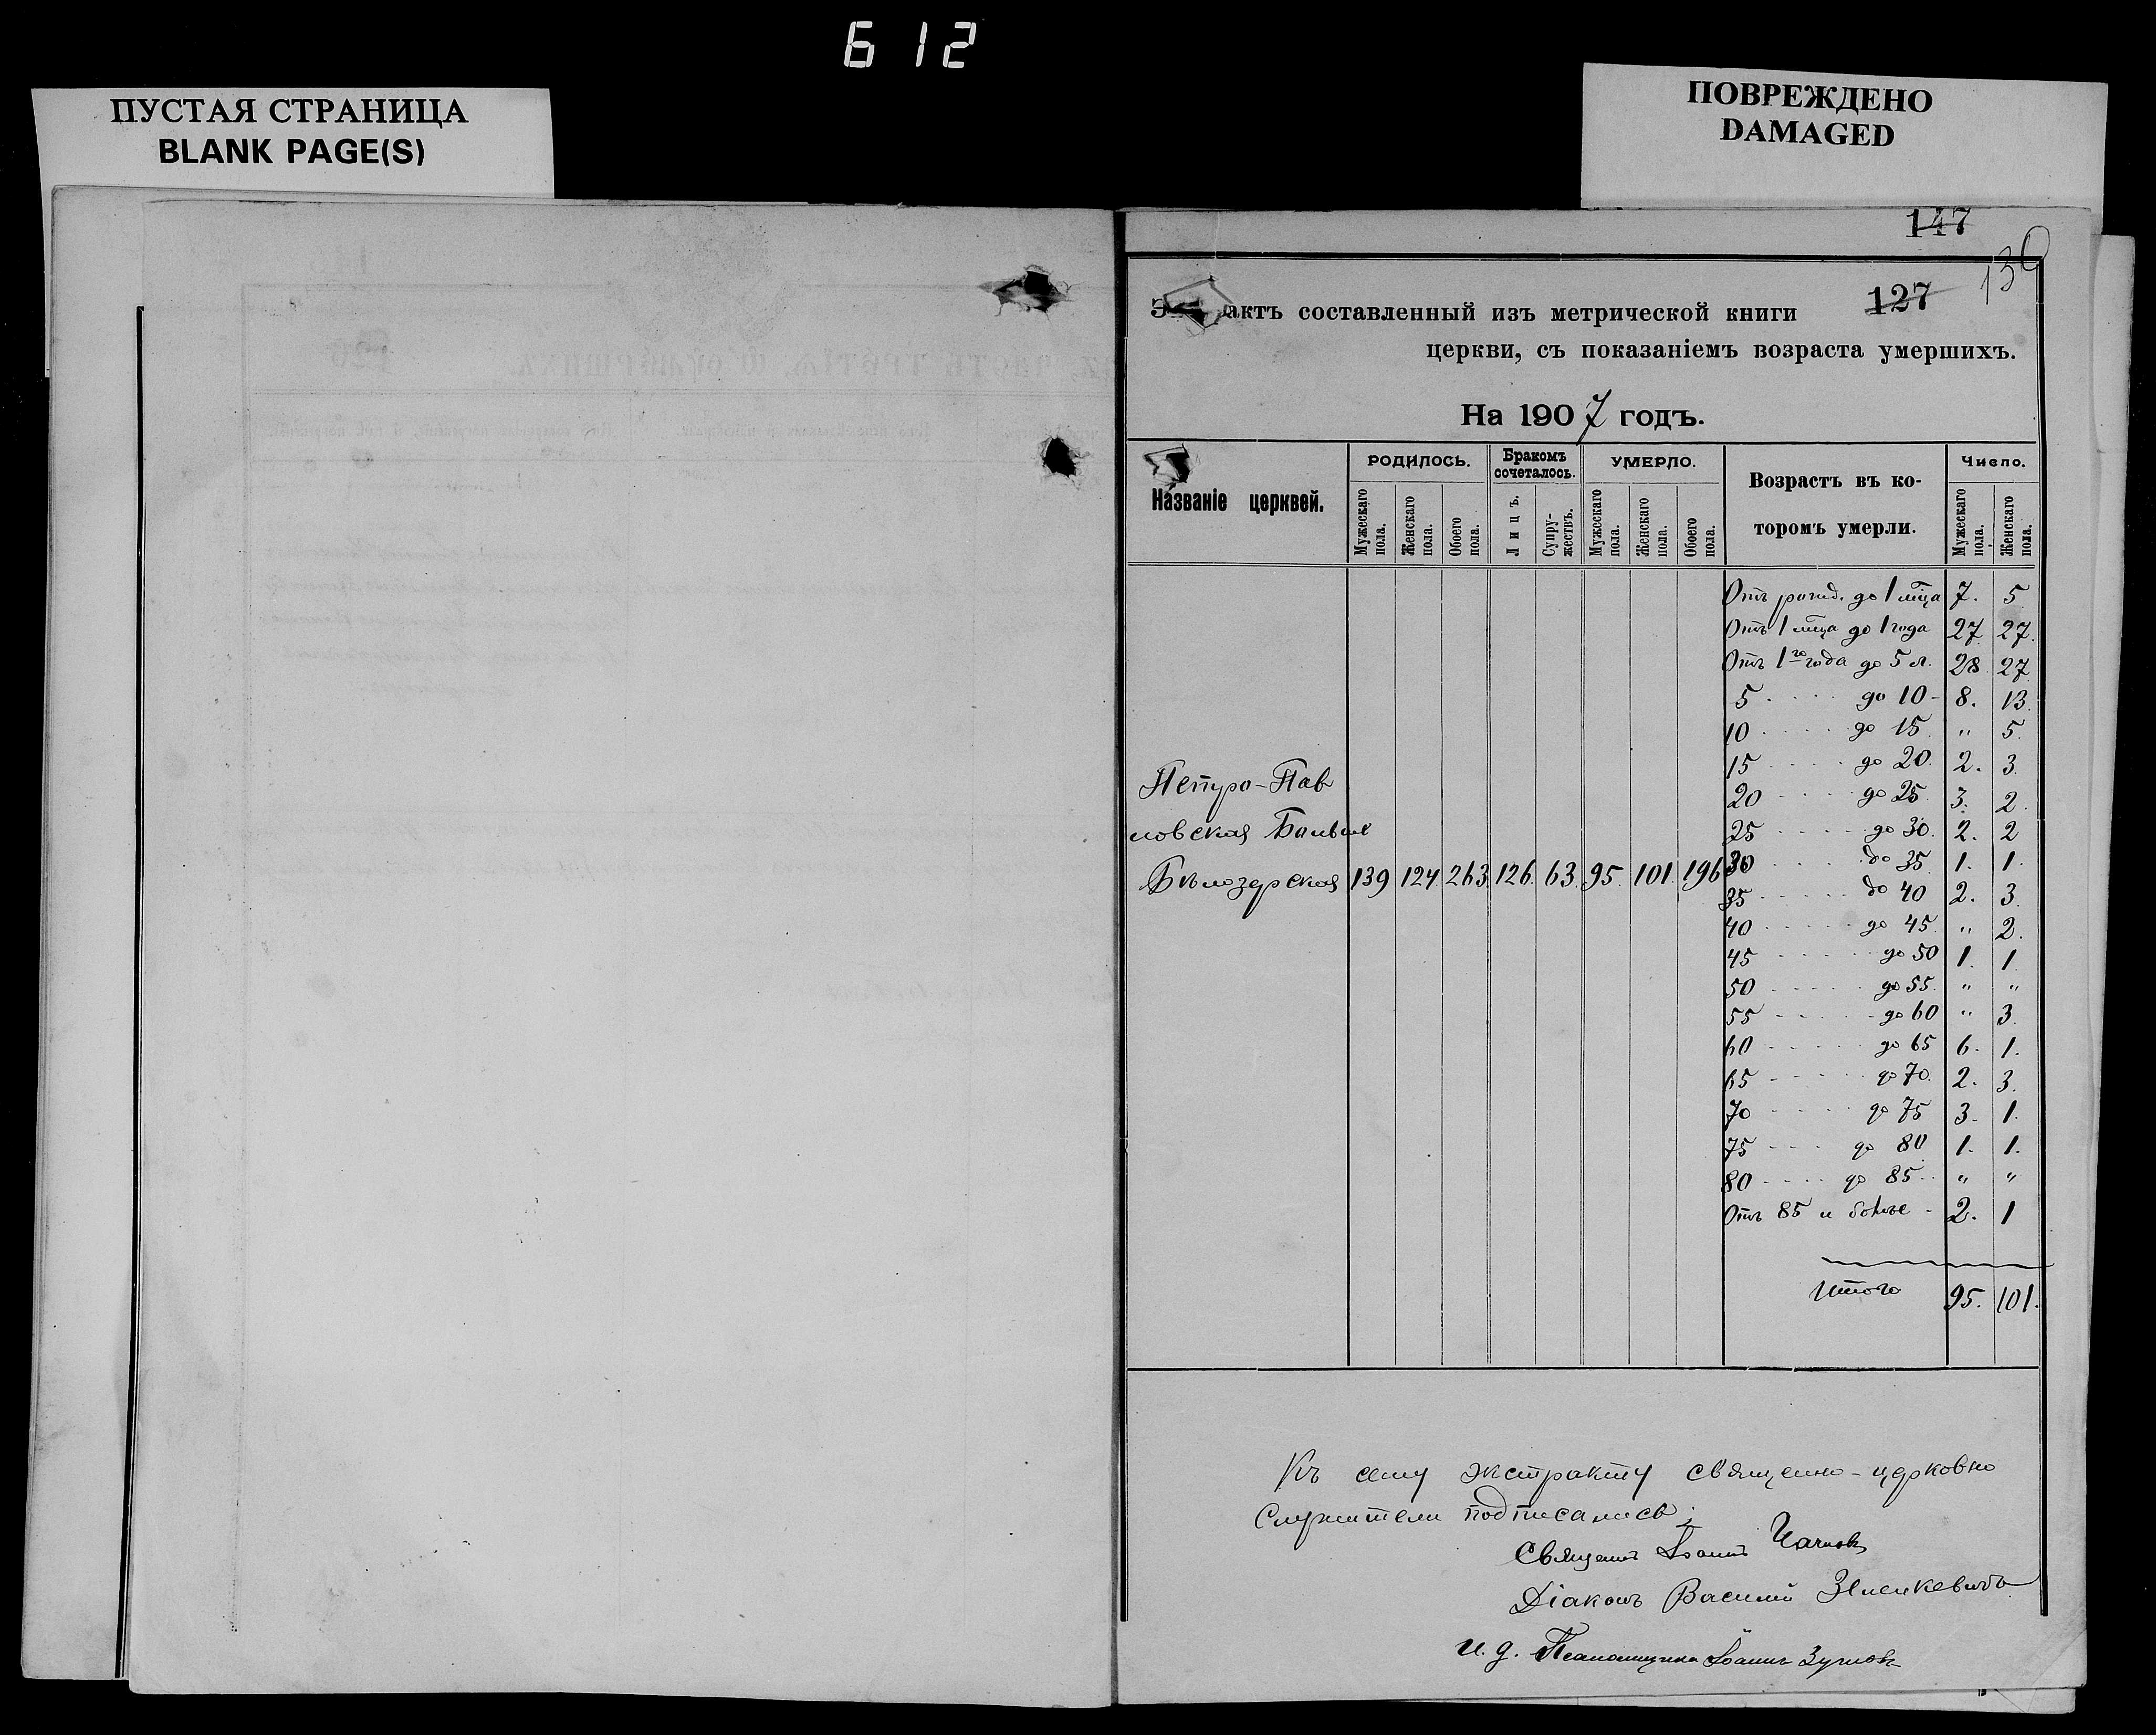 612
ПУСТАЯ СТРАНИЦА
BLANK PAGE(S)
ПОВРЕЖДЕНО
DAMAGED
147
127
актъ составленный изъ метрической книги
церкви, съ показаніемъ возраста умершихъ.
На 1907 годъ.
Названіе церквей.
РОДИЛОСЬ.
Бракомъ сочеталось.
УМЕРЛО.
Возрастъ въ ко-
торомъ умерли.
Число.
Мужескаго пола.
Женскаго пола.
Обоего пола.
Лицъ.
Супру-жествъ.
Мужескаго пола.
Женскаго пола.
Обоего пола.
Мужескаго пола.
Женскаго пола.
Отъ рожд. до 1 мца 7. 5
Отъ 1 мца до 1 года 27 27.
Отъ 1го года до 5 л. 28 27
5 до 10 - 8. 13
10 до 15 " 5.
15 до 20. 2. 3.
20 до 25. 3. 2.
25 до 30. 2. 2
30 до 35 1. 1.
35 до 40 2. 3.
40 до 45. " 2.
45 до 50 1. 1.
50 до 55. " "
55 до 60 " 3.
60 до 65 6. 1.
65 до 70. 2. 3.
70 до 75 3. 1.
75 до 80 1. 1.
80 до 85 " "
Отъ 85 и болѣе - 2. 1
Итого 95. 101.
Петро-Пав
ловская Больше
Бѣлозерская 139 124 263 126 63. 95. 101. 196
Къ сему экстракту священно-церковно
служители подписались:
Священ Іоаннъ
Діаконъ Василій
и. д. Псаломщика Іоаннъ